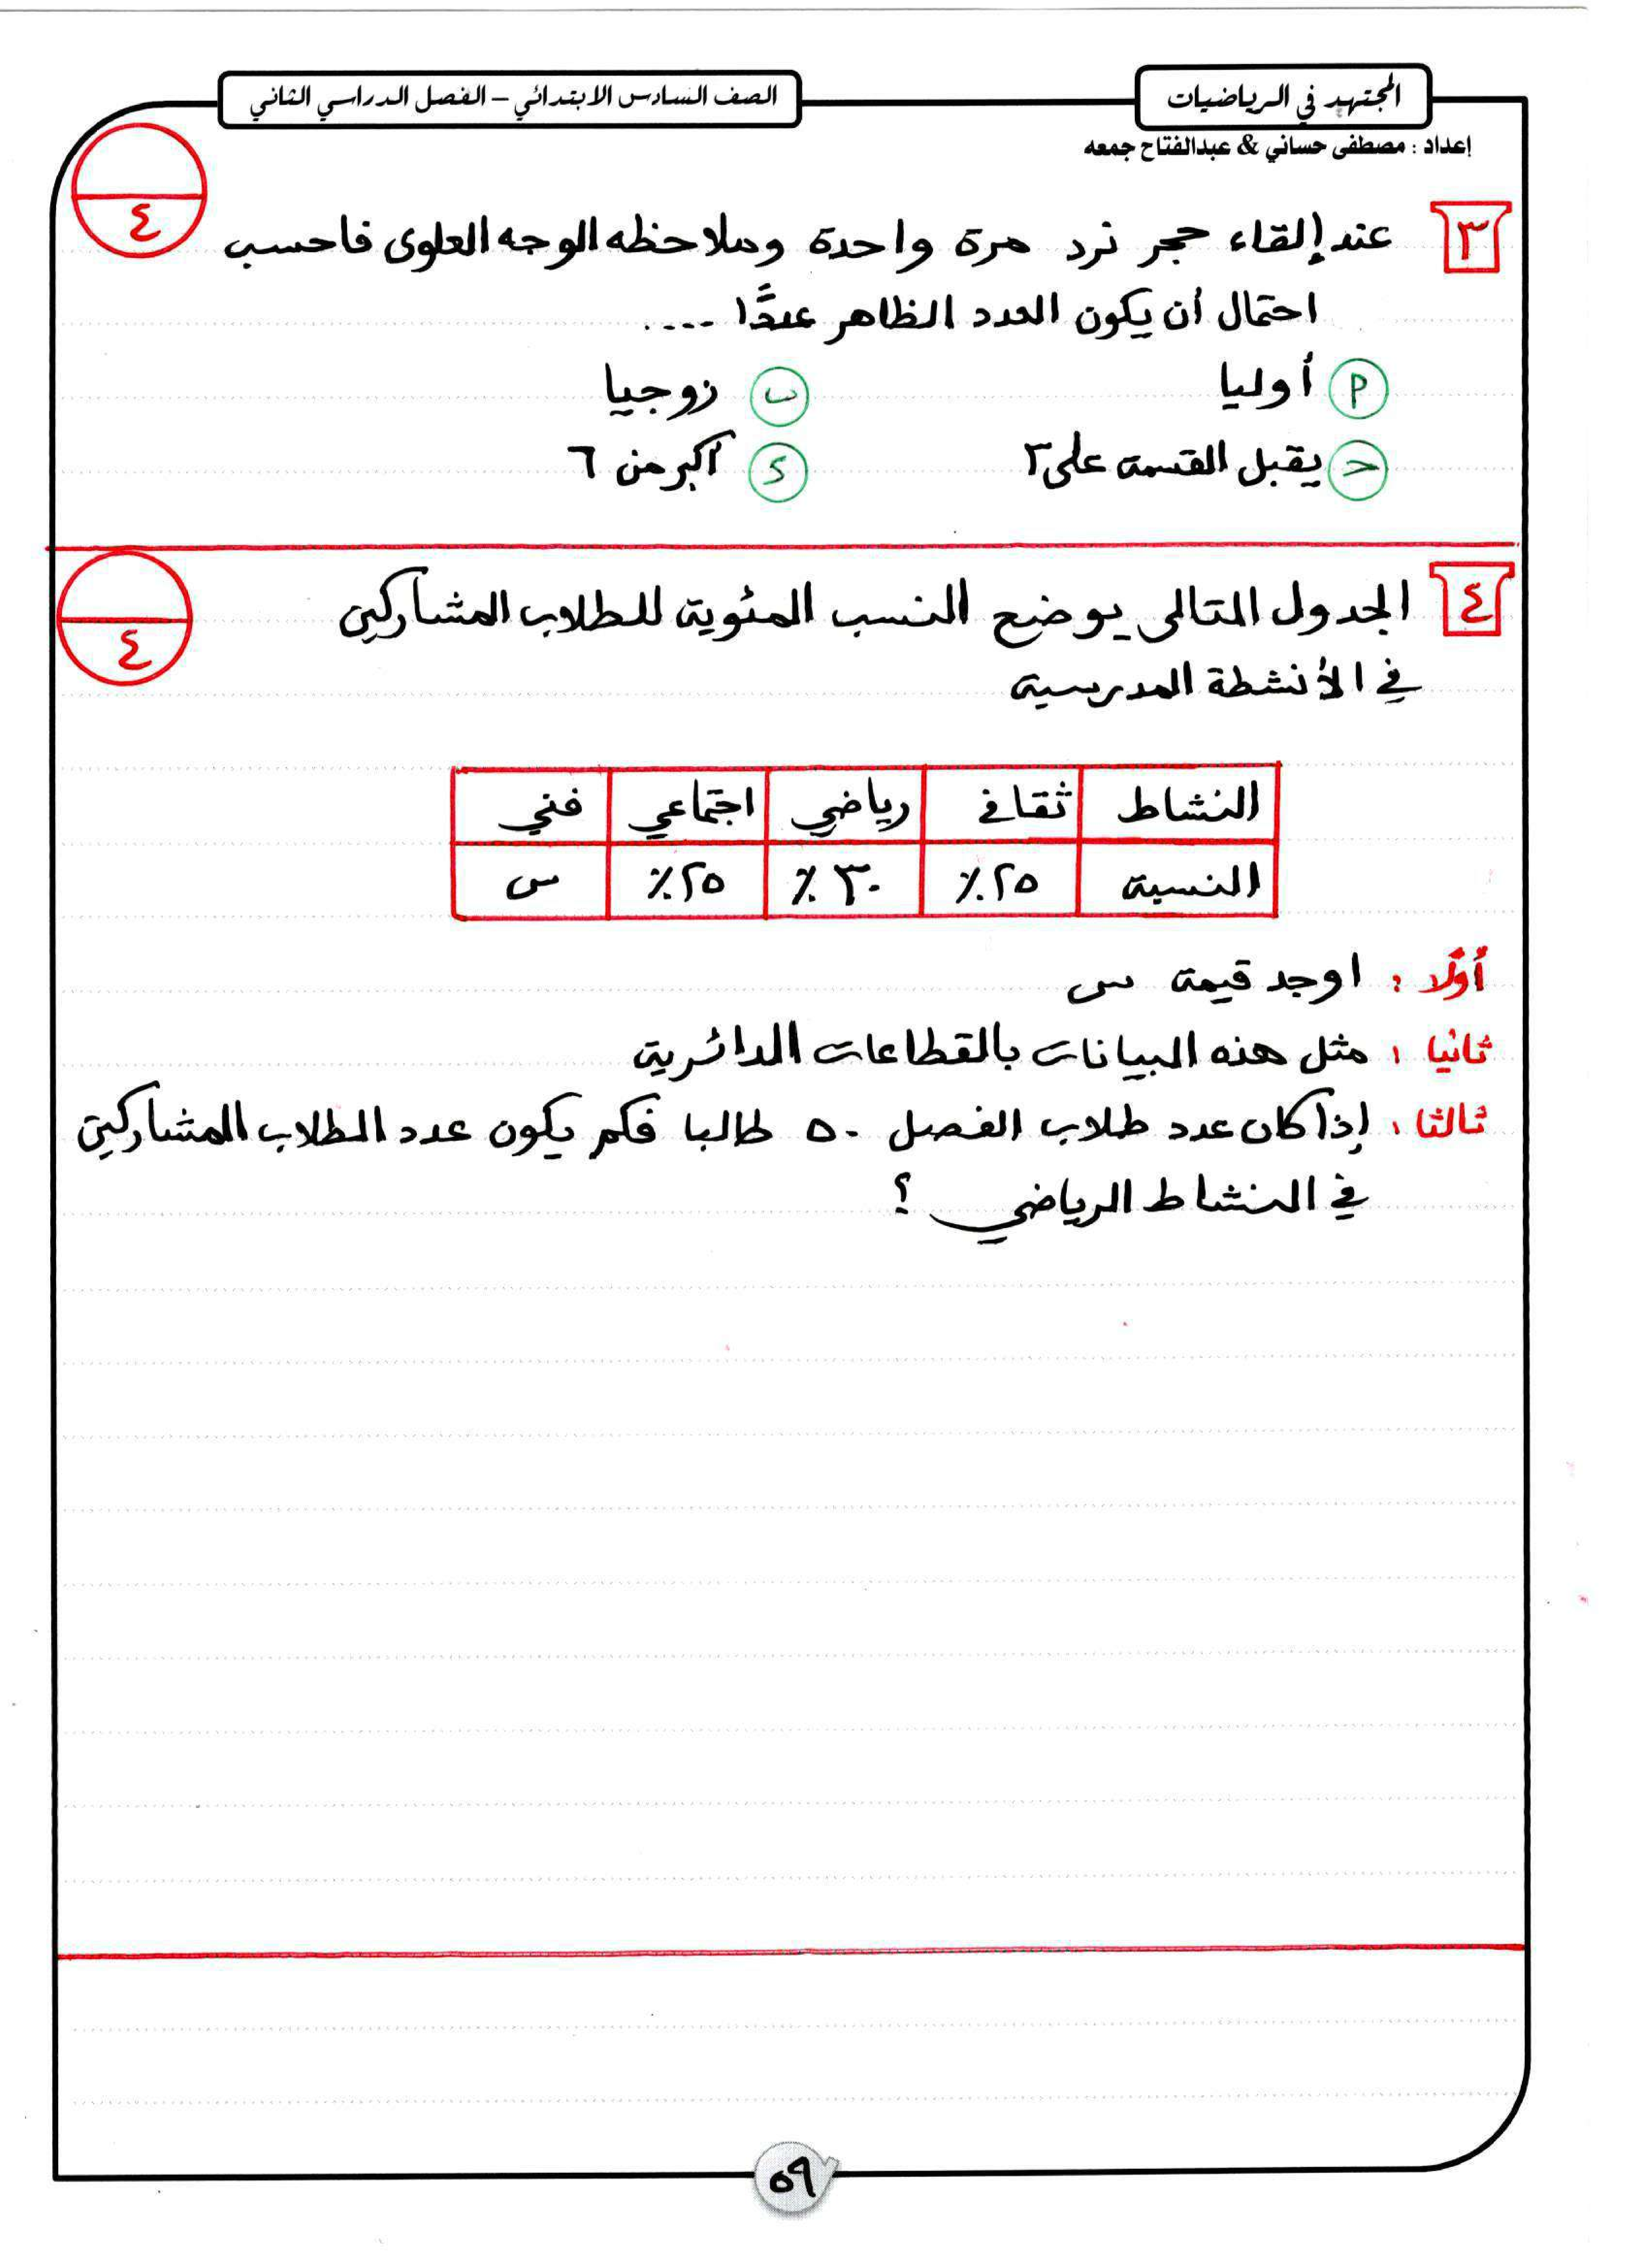 المجتهد في الرياضيات
الصف السادس الابتدائي – الفصل الدراسي الثاني
إعداد : مصطفى حساني & عبدالفتاح جمعه
٤
٣ عند إلقاء حجر نرد مرة واحدة وملاحظه الوجه العلوى فاحسب
احتمال أن يكون العدد الظاهر عددًا ....
أ أوليا ب زوجيا
ح يقبل القسمة على ٢ د أكبر من ٦
٤
٤ الجدول التالى يوضح النسب المئوية للطلاب المشاركين
في الأنشطة المدرسية
النشاط ثقافى رياضي اجتماعي فني
النسبة ٢٥٪ ٣٠٪ ٢٥٪ س
أولًا : اوجد قيمة س
ثانيا : مثل هذه البيانات بالقطاعات الدائرية
ثالثا : إذا كان عدد طلاب الفصل ٥٠ طالبا فكم يكون عدد الطلاب المشاركين
في النشاط الرياضي ؟
٥٩